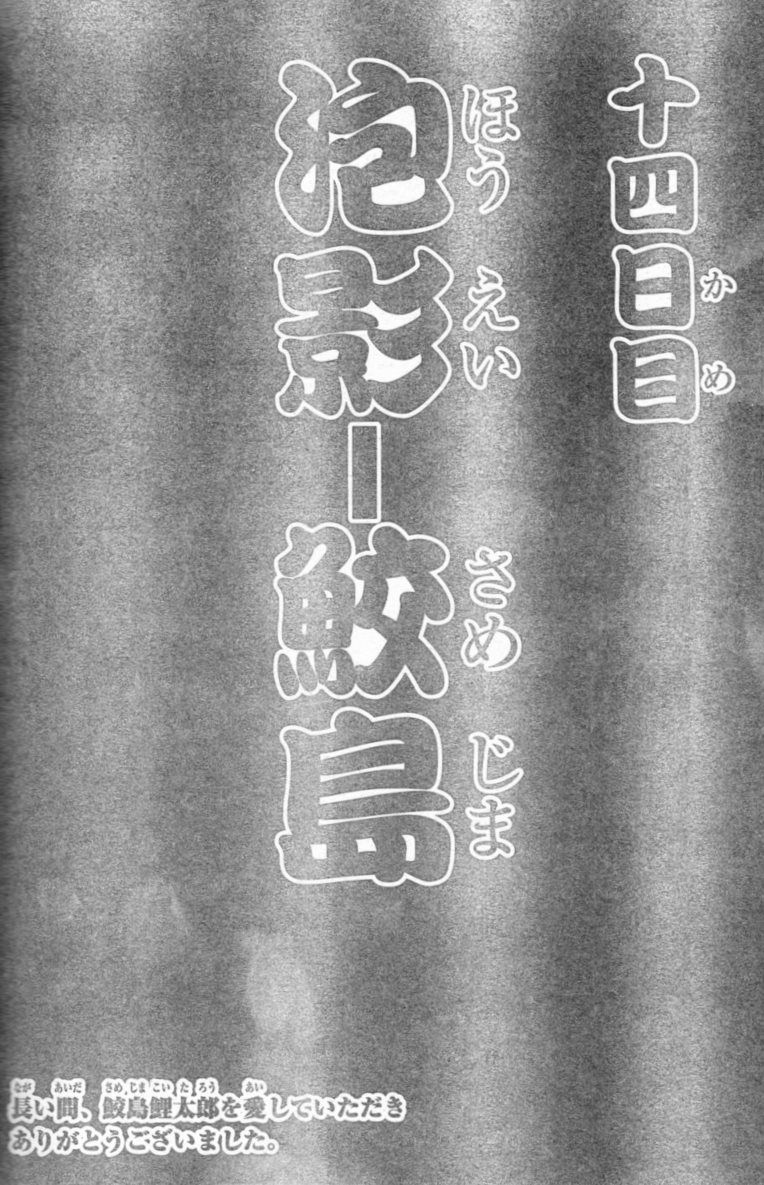 十四日目
かめ
泡影ー鮫島
ほうえいさめじま
長い間、鮫島鯉太郎を愛していただき
ながあいださめじまこいたろうあい
ありがとうございました。